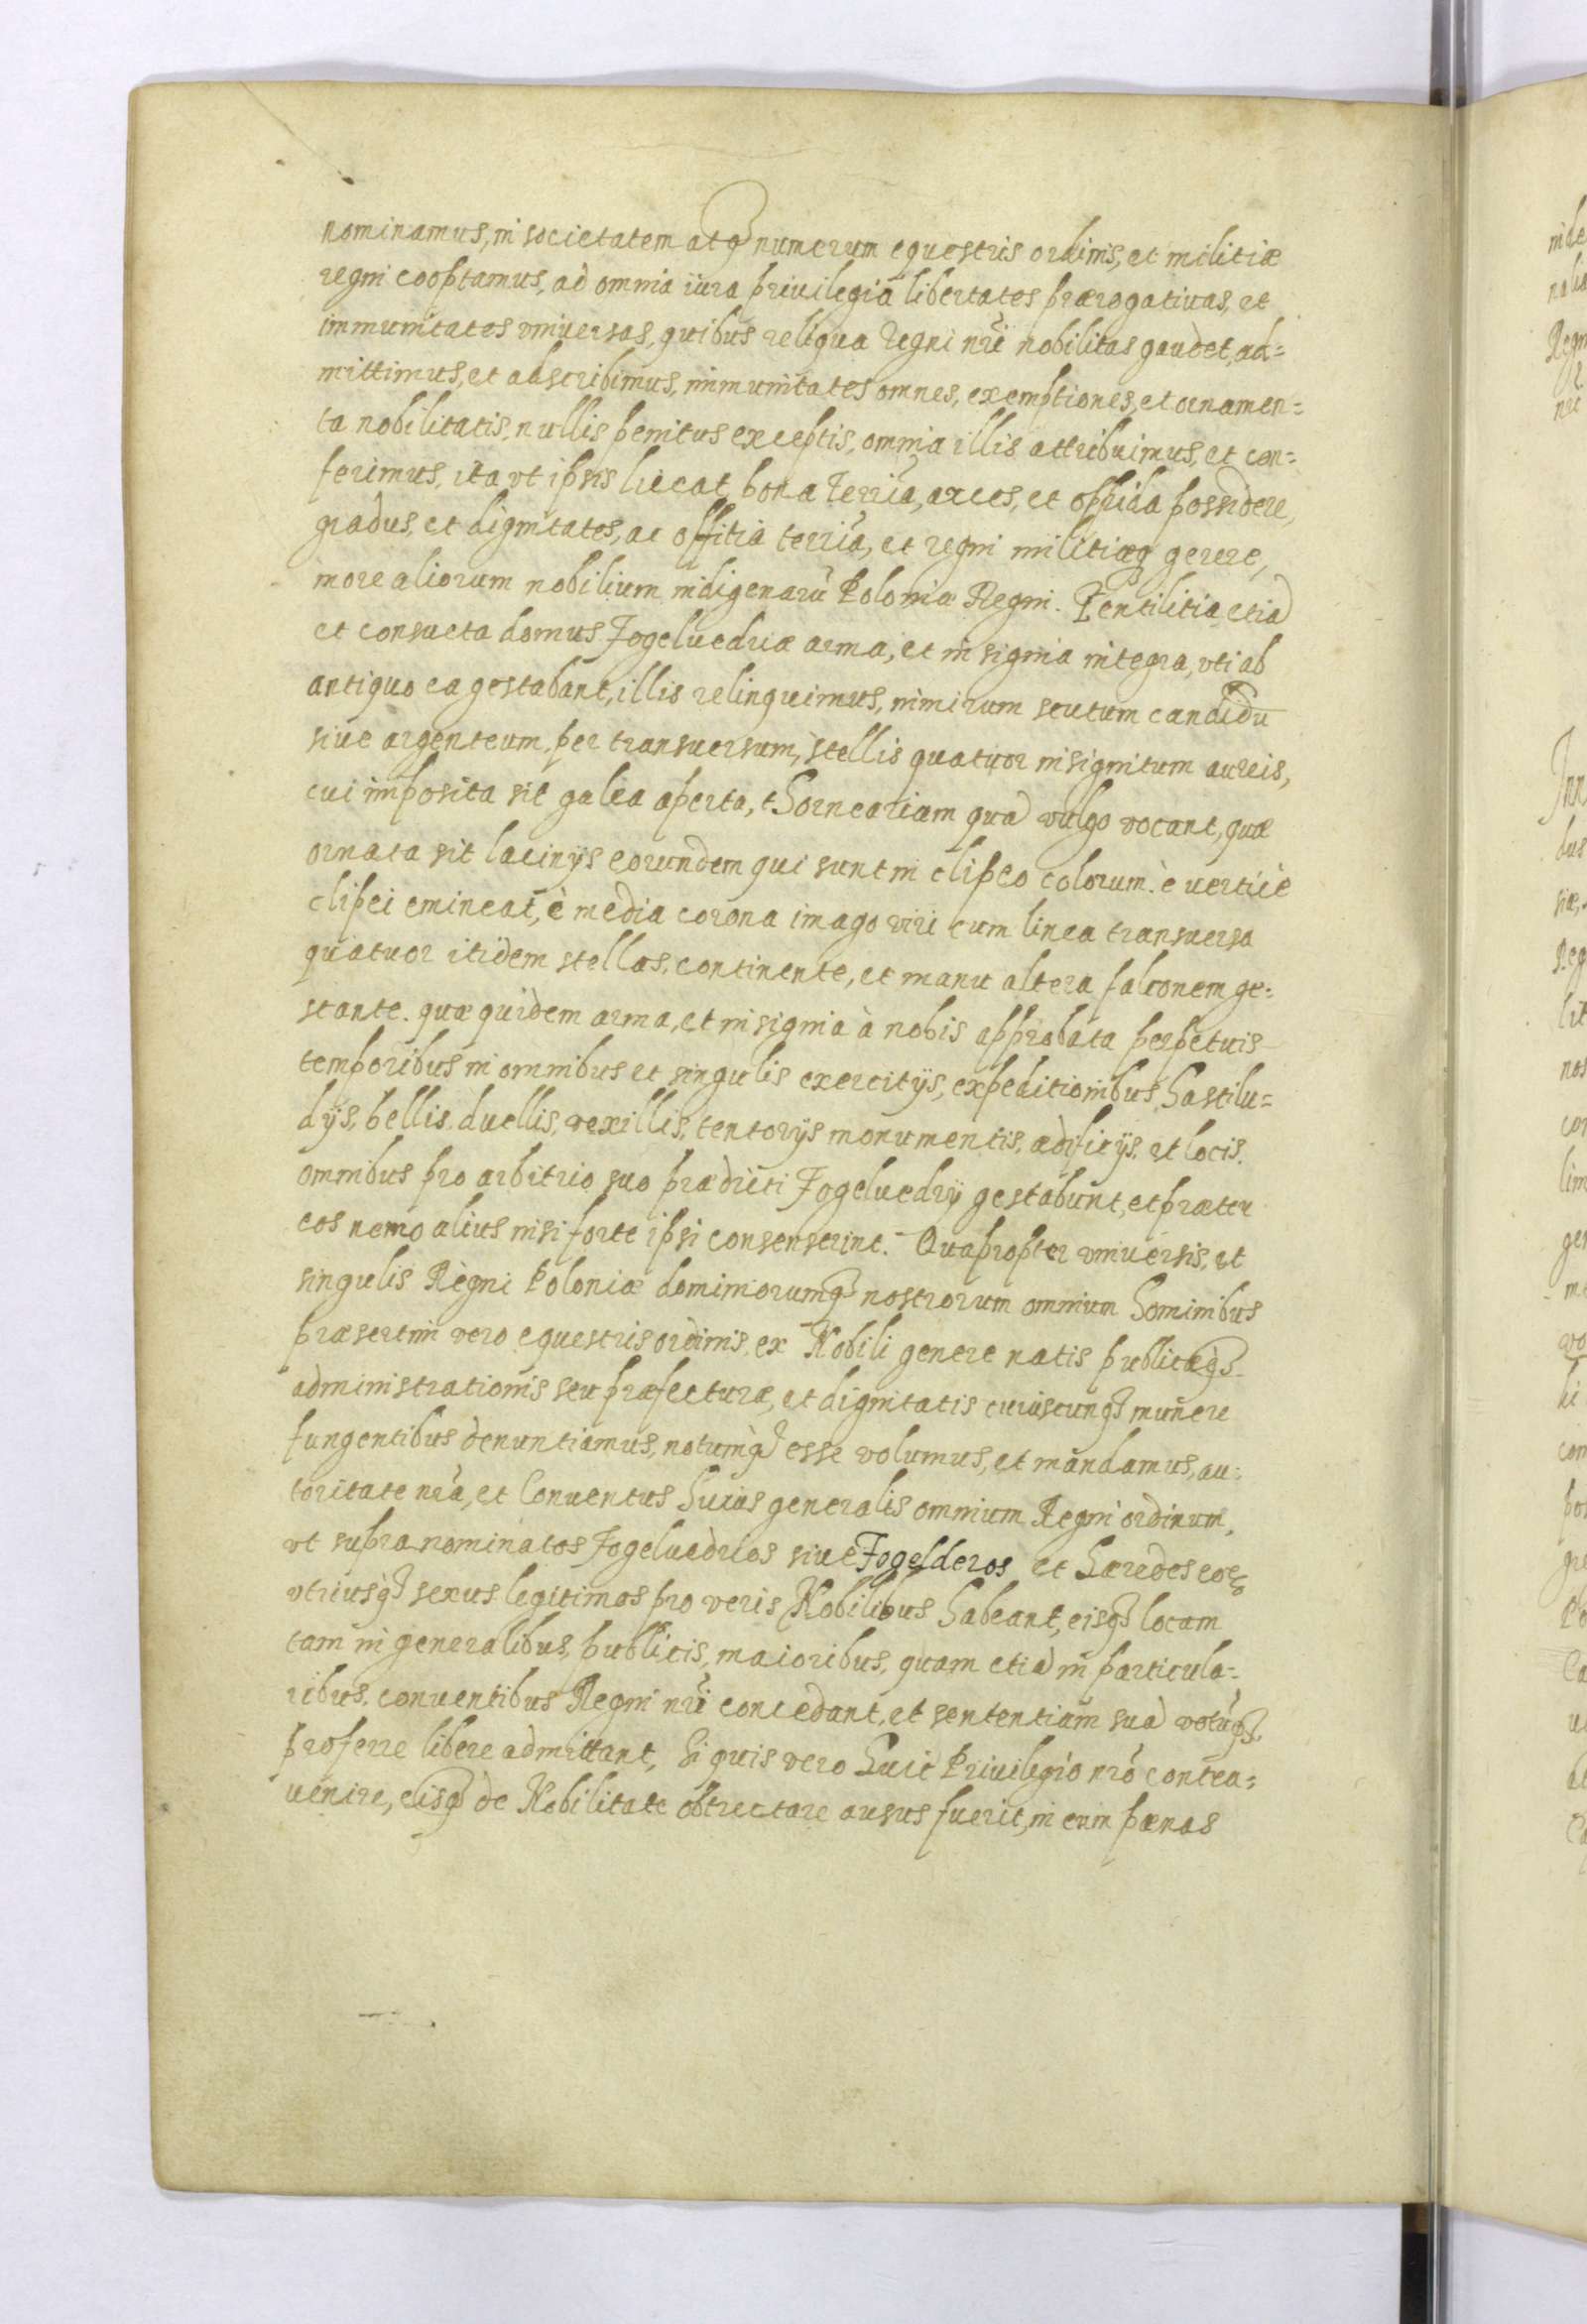 nominamus, in societatem atq numerum equestris ordinis, et militiæ
regni cooptamus, ad omnia iura priuilegia libertates prærogatiuas, et
immunitates vniuersas, quibus reliqua Regni nrĩ nobilitas gaudet, ad=
mittimus, et adscribimus, immunitates omnes, exemptiones, et ornamen=
ta nobilitatis, nullis penitus exceptis, omnia illis attribuimus, et con=
ferimus, ita vt ipsis liceat bona Terria, arces, et oppida possidere,
gradus, et dignitates, ac offitia terria, et regni militiæq gerere,
more aliorum nobilium indigenarũ Poloniæ Regni. Gentilitia etiã
et consueta domus Fogeluedriæ arma, et insignia integra, vti ab
antiquo ea gestabant, illis relinquimus, nimirum scutum candidũ
siue argenteum, per transuersum, stellis quatuor insignitum aureis,
cui imposita sit galea aperta, thorneariam quã vulgo vocant, quæ
ornata sit lacinijs eorundem qui sunt in clipeo colorum. è uertice
clipei emineat, è media corona imago viri cum linea transuersa
quatuor itidem stellas, continente, et manu altera falconem ge=
stante. quæ quidem arma, et insignia à nobis approbata perpetuis
temporibus in omnibus et singulis exercitijs, expeditionibus, hastilu=
dijs, bellis, duellis, vexillis, tentorijs monumentis, ædificijs, et locis.
omnibus pro arbitrio suo prædicti Fogeluedrij gestabunt, et præter
eos nemo alius nisi forte ipsi consenserint. Quapropter vniuersis, et
singulis Regni Poloniæ dominiorumq nostrorum omnium hominibus
præsertim vero equestris ordinis, ex Nobili genere natis publicæq
administrationis seu præfecturæ, et dignitatis cuiuscunq munere
fungentibus denuntiamus, notumq esse volumus, et mandamus, au=
toritate nrã, et Conuentus huius generalis omnium Regni ordinum,
vt supra nominatos Fogeluedrios siue Fogelderos et hæredes eoꝝ
vtriusq sexus legitimos pro veris Nobilibus habeant, eisq locum
tam in generalibus, publicis, maioribus, quam etiã in particula=
ribus, conuentibus Regni nrĩ concedant, et sententiam suã votũq
proferre libere admittant, Si quis vero huic Priuilegio nrõ contra=
uenire, eisq de Nobilitate obtrectare ausus fuerit, in eum pænas